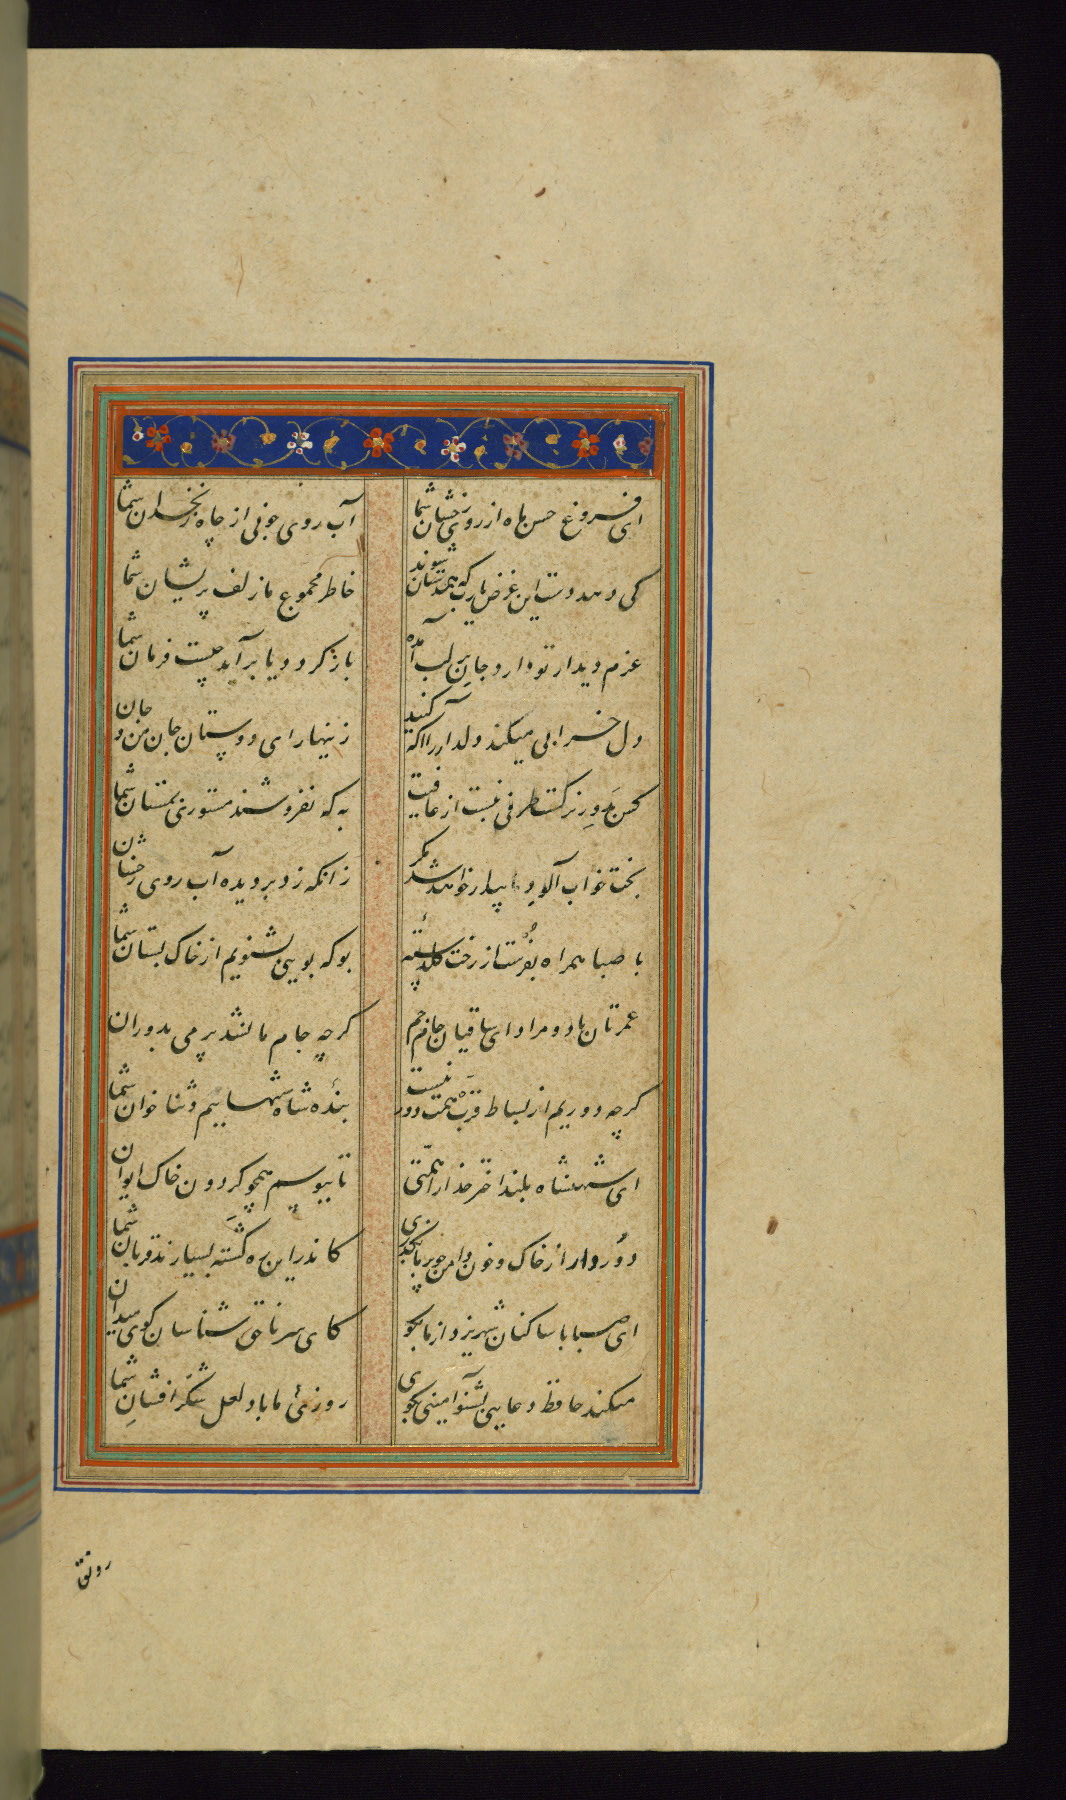 ای فروغ حسن ماه از روی رخشان شما
آب روی خوبی از چاه زنخدان شما
کی دهد دست این غرض یارب که همدستان شوند
خاطر مجموع ما زلف پریشان شما
عزم دیدار تو دارد جان بر لب آمده
باز کردد یا برآید چیست فرمان شما
دل خرابی میکند دلدار را اکه کنید
زینهار ای دوستان جان من و جان
کس بدور نرکست طرفی نبست از عافیت
به که نفروشند مستوری بمستان شما
بخت خواب آلود ما بیدار خواهد شد مکر
زانکه زد بر دیده آب روی رخشان
با صبا همراه بفرست از رخت کلدسته
بو که بویی بشنویم از خاک بستان شما
عمرتان باد و مراد ای ساقیان جام جم
کرچه جام ما نشد پر می بدوران
کرچه دوریم از بساط قرب همت دور نیست
بنده شاه شماییم و ثنا خوان شما
ای شهنشاه بلند اختر خدا را همتی
تا ببوسم همچو کردون خاک ایوان
دور دار از خاک و خون دامن چو بر ما بکذری
کاندر این ره کشته بسیارند قربان شما
ای صبا با ساکنان شهر یزد از ما بکو
کای سر ناحق شناسان کوی میدان
میکند حافظ دعایی بشنو آمینی بکوی
روزئ ما باد لعل شکر افشان شما
رونق